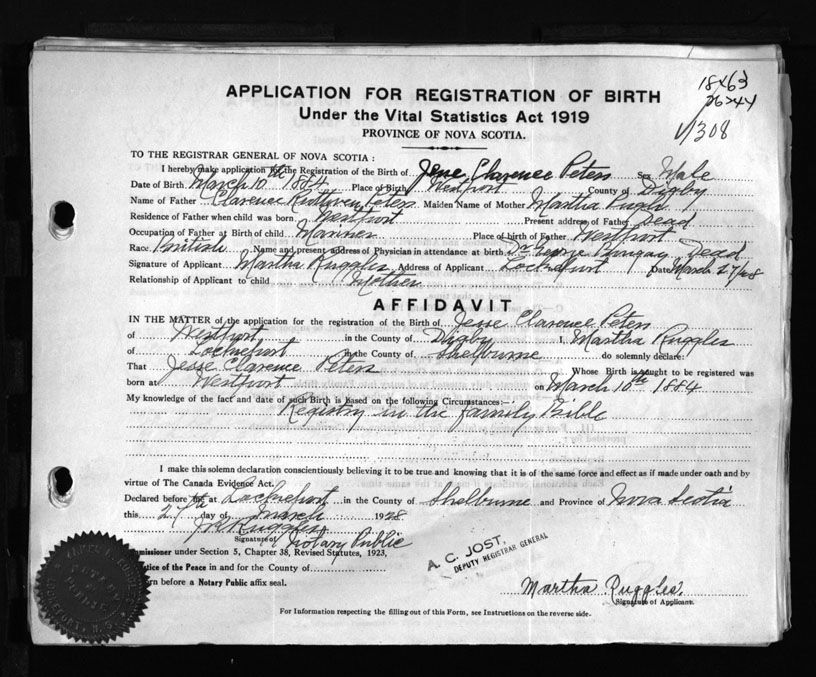 18463
26744
1308
APPLICATION FOR REGISTRATION OF BIRTH
Under the Vital Statistics Act 1919
PROVINCE OF NOVA SCOTIA.
TO THE REGISTRAR GENERAL OF NOVA SCOTIA :
I hereby make application for the Registration of the Birth of Jesse Clarence Peters Sex Male
Date of Birth March 10th 1884 Place of Birth Westport County of Digby
Name of Father Clarence Peters Maiden Name of Mother Martha
Residence of Father when child was born Westport Present address of Father Dead
Occupation of Father at Birth of child Mariner Place of birth of Father Westport
Race British Name and present address of Physician in attendance at birth Dr George Dead
Signature of Applicant Martha Ruggles Address of Applicant Lockeport Date March 27/28
Relationship of Applicant to child Mother
AFFIDAVIT
IN THE MATTER of the application for the registration of the Birth of Jesse Clarence Peters
of Westport in the County of Digby I, Martha Ruggles
of Lockeport in the County of Shelburne do solemnly declare:
That Jesse Clarence Peters Whose Birth is sought to be registered was
born at Westport on March 10th 1884
My knowledge of the fact and date of such Birth is based on the following Circumstances:-
Registry in the family Bible
I make this solemn declaration conscientiously believing it to be true and knowing that it is of the same force and effect as if made under oath and by
virtue of The Canada Evidence Act.
Declared before me at Lockeport in the County of Shelburne and Province of Nova Scotia
this 27th day of March 1928
Ruggles
Signature of Notary Public
Commissioner under Section 5, Chapter 38, Revised Statutes, 1923,
Justice of the Peace in and for the County of
before a Notary Public affix seal.
A. C. JOST,
DEPUTY REGISTRAR GENERAL
Martha Ruggles.
Signature of Applicant.
For Information respecting the filling out of this Form, see Instructions on the reverse side.